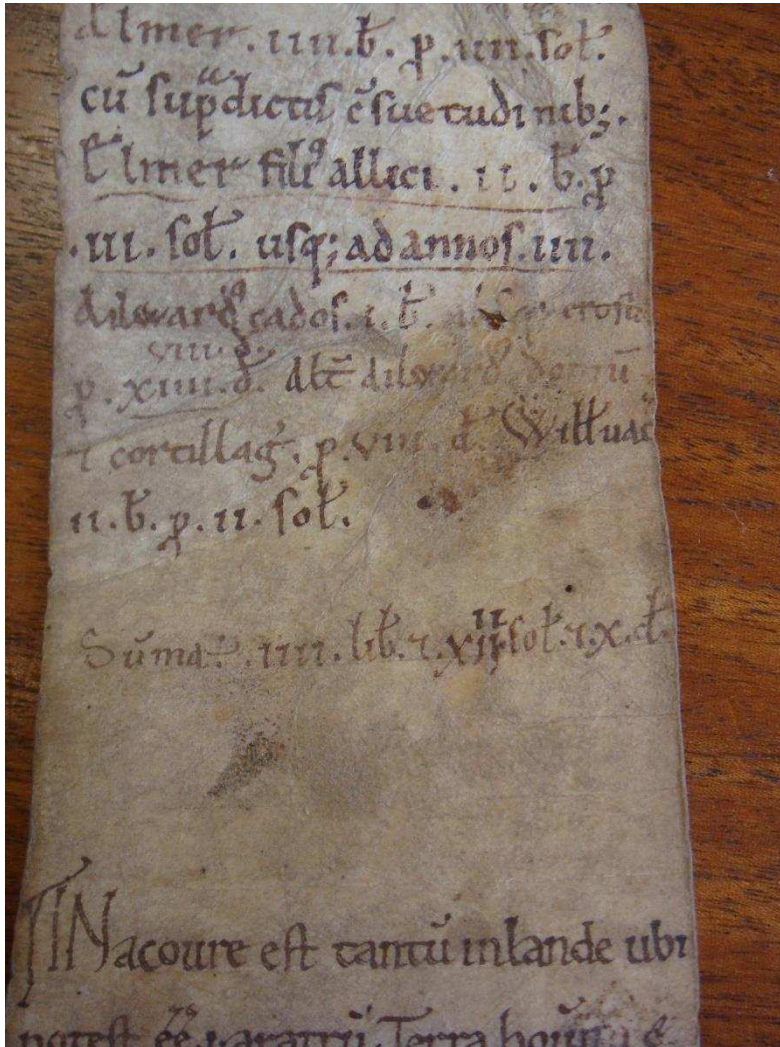 Ælmer. iiii. b̄. p̱. iiii. sol̄.
cū sup̱dictis c̄suetudinib;.
Elmer filiꝰ allici. ii. b̄. p̱
.iii. sol̄. usq; ad annos. iiii.
Ailwardꝰ cados. i. b̄.
viii. d̄.
p̱. xiiii. d̄. Ailward
⁊ cortillaḡ. p̱. viii. d̄. Will̄
ii. b̄. p̱. ii. sol̄.
Sūma. iiii. lib̄. ⁊. xii ii sol̄. ⁊. x. d̄.
IN acoure est tantū inlande ubi
potest ēē. i. aratrū. Terra